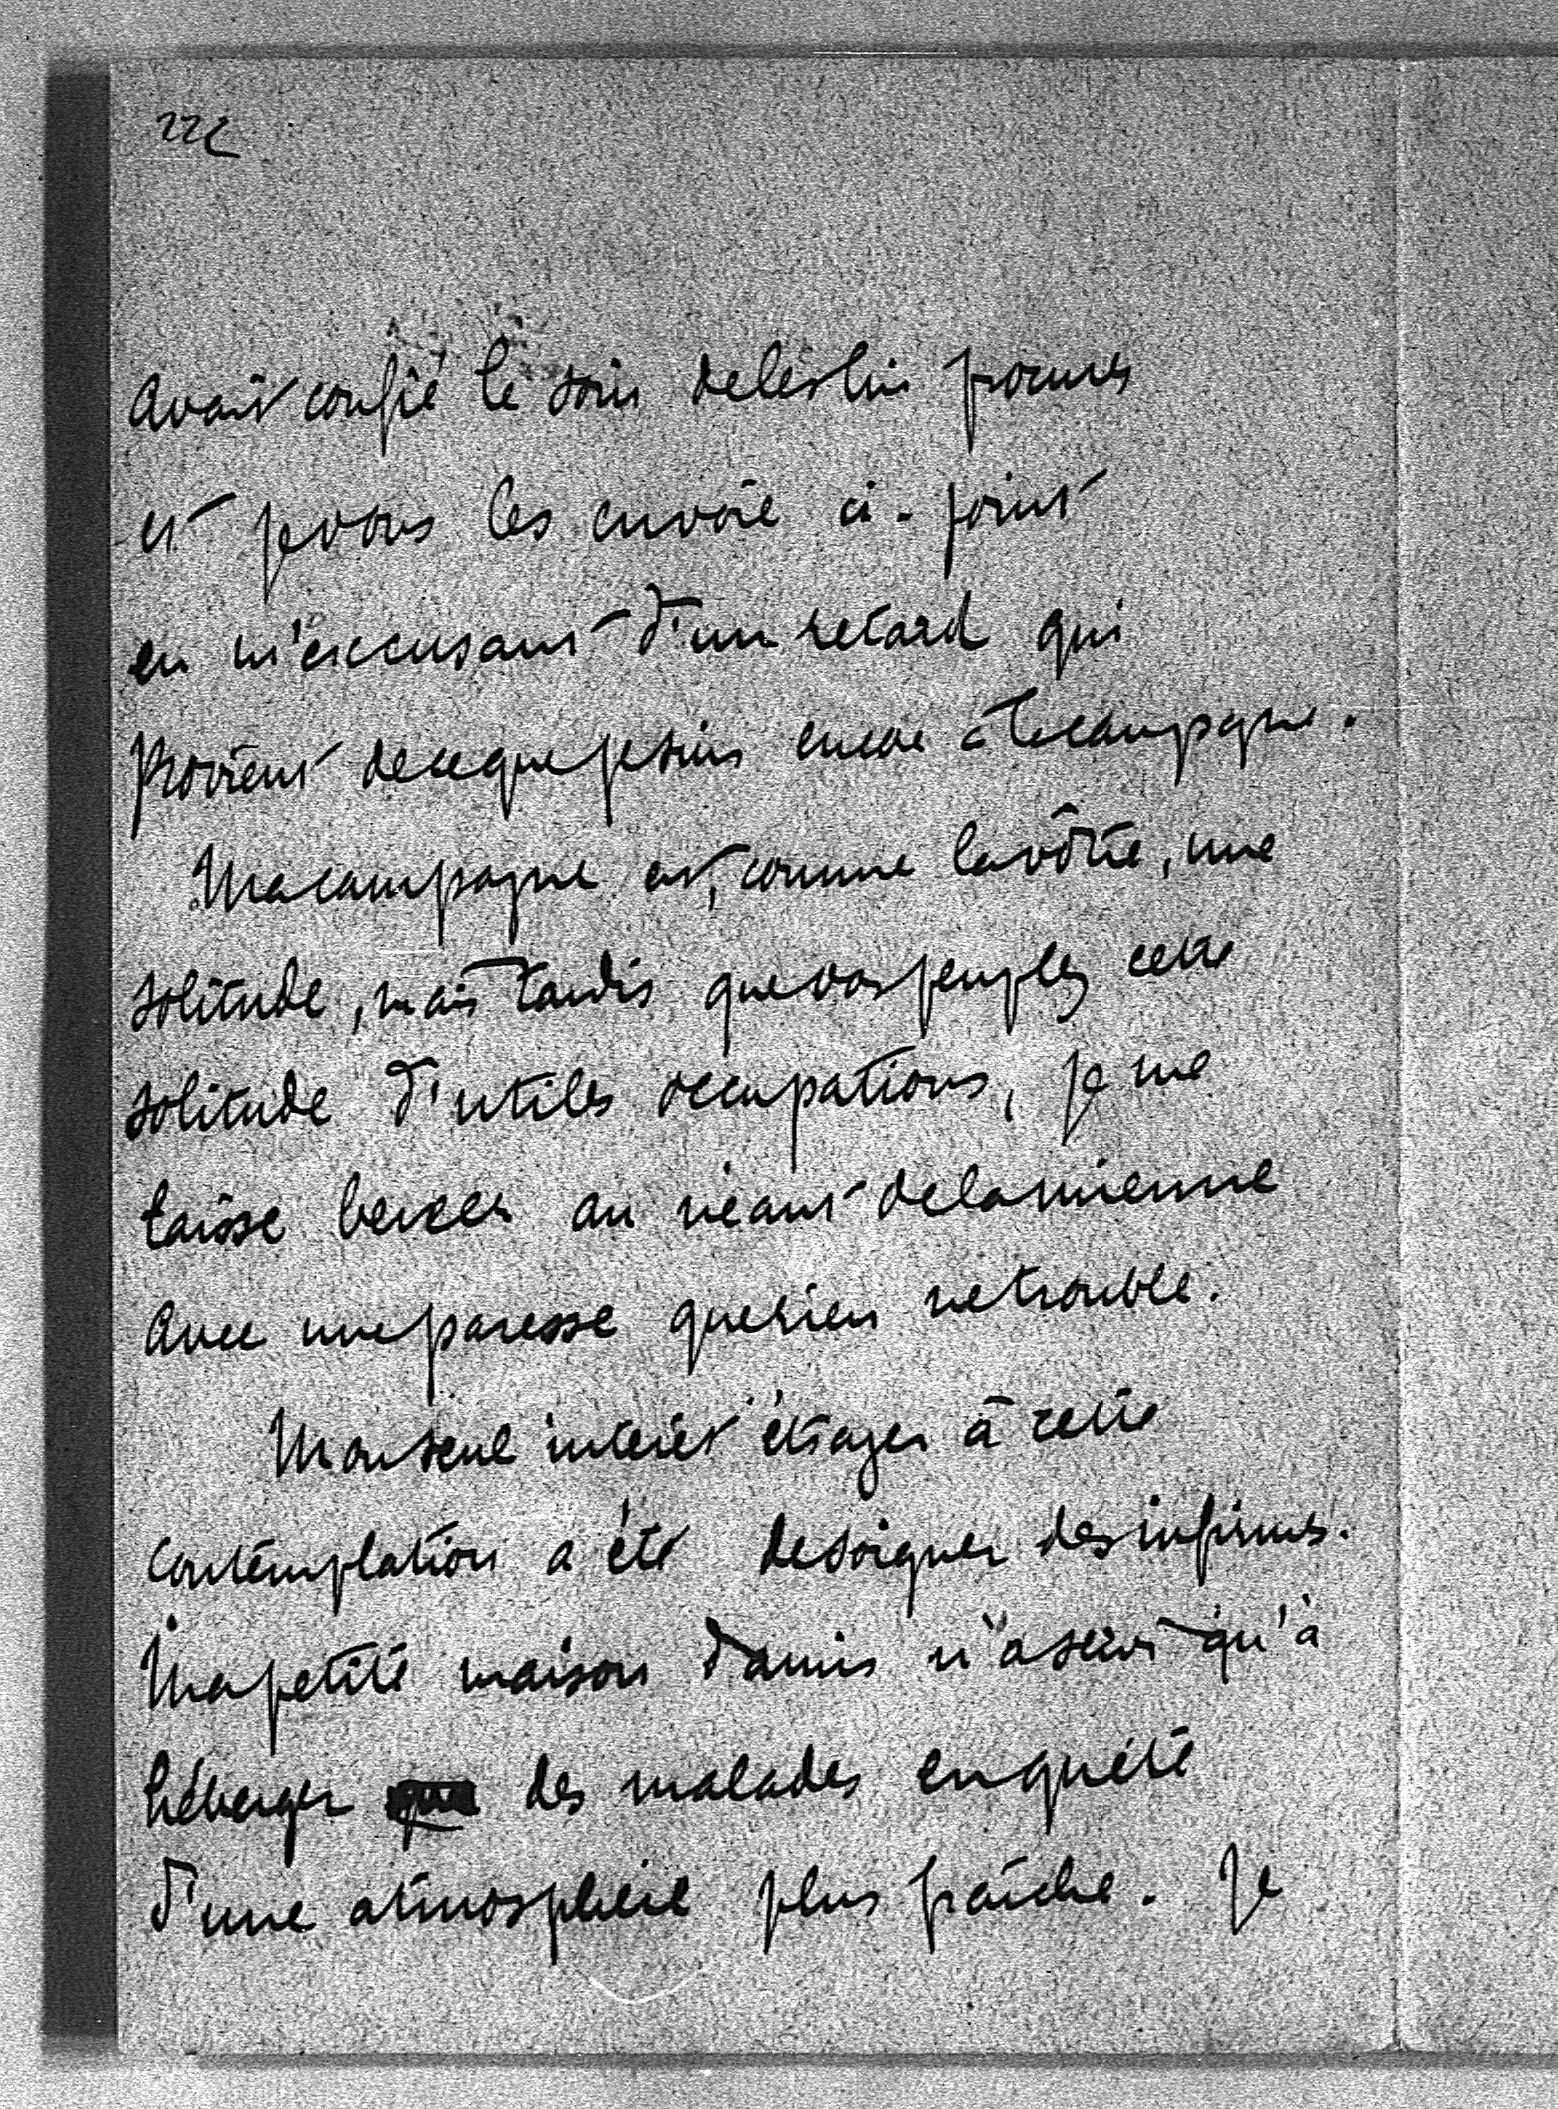 222
avait confié le soin de les lui procurer
et je vous les envoie ci-joint
en m'excusant d'un retard qui
provient de ce que je suis encore à la campagne.
Ma campagne est, comme la vôtre, une
solitude, mais tandis que vous peuplez cette
solitude d'utiles occupations, je me
laisse bercer au néant de la mienne
avec une paresse que rien ne trouble.
Mon seul intérêt étranger à cette
contemplation a été de soigner des infirmes.
Ma petite maison d'amis n'a servi qu'à
héberger des malades en quête
d'une atmosphère plus fraîche. Je